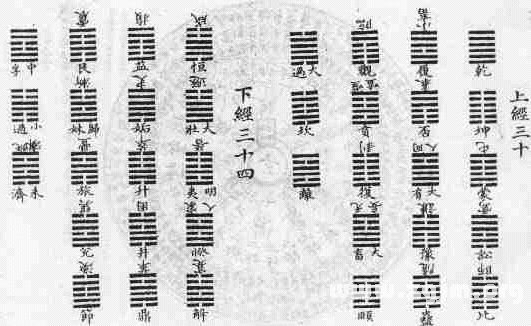 上經三十
乾
坤
屯
蒙
需
訟
師
比
小畜
履
泰
否
同人
大有
謙
豫
隨
蠱
臨
觀
噬嗑
賁
剝
復
无妄
大畜
頤
大過
坎
離
下經三十四
咸
恒
遯
大壯
晉
明夷
家人
睽
蹇
解
損
益
夬
姤
萃
升
困
井
革
鼎
震
艮
漸
歸妹
豐
旅
巽
兌
渙
節
中孚
小過
既濟
未濟